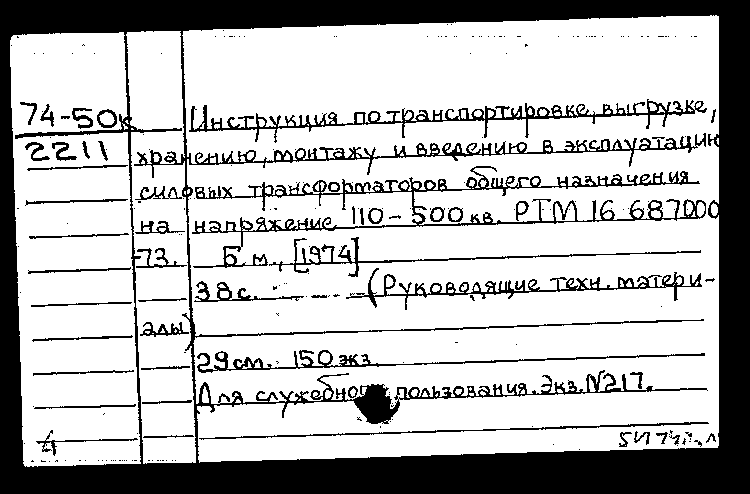 74-50к
2211
Инструкция по транспортировке, выгрузке,
хранению, монтажу и введению в эксплуатацию
силовых трансформаторов общего назначения
на напряжение 110-500 кв. РТМ 16 687000
-73. Б.м., [1974]
38 с. (Руководящие техн. матери-
алы)
29 см. 150 экз.
Для служебного пользования. Экз. N217.
4